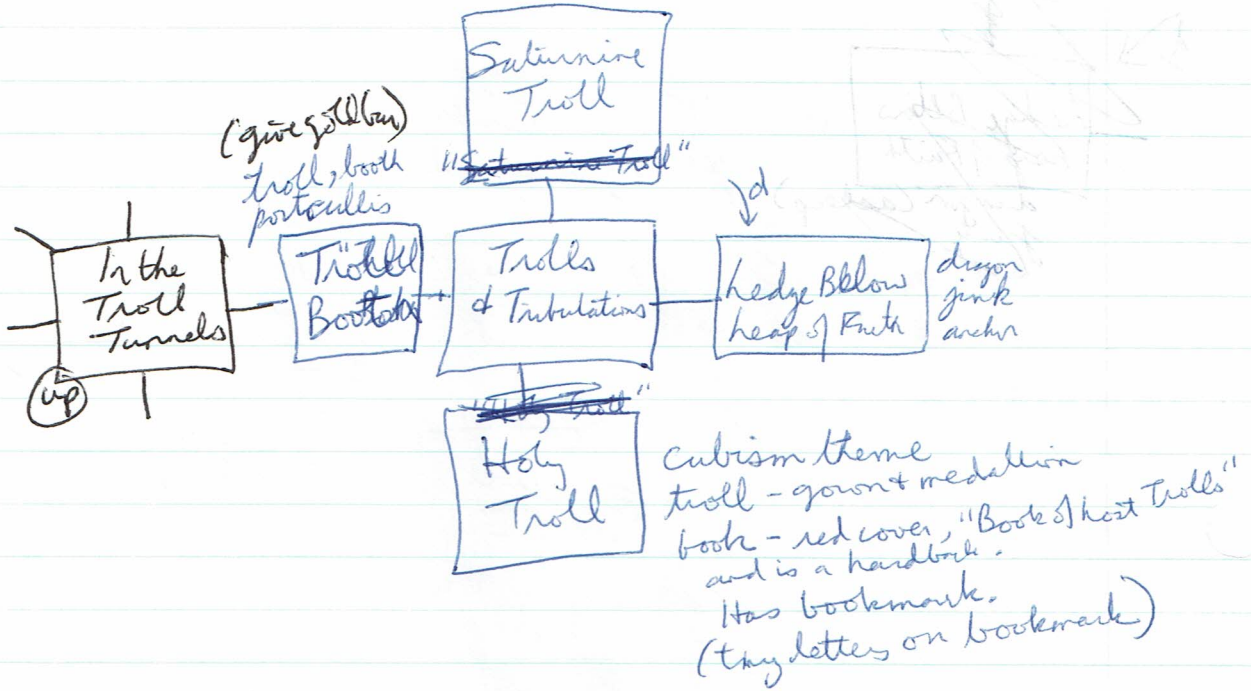 Saturnine
Troll
"Saturnine Troll"
(give gold bar)
troll, booth
portcullis
In the
Troll
Tunnels
up
Troll
Booth
Trolls
& Tribulations
d
Ledge Below
heap of Filth
dragon
junk
anchor
"Holy Troll"
Holy
Troll
cubism theme
troll - gown & medallion
book - red cover, "Book of Lost Trolls"
and is a hardback.
Has bookmark.
(tiny letters on bookmark)